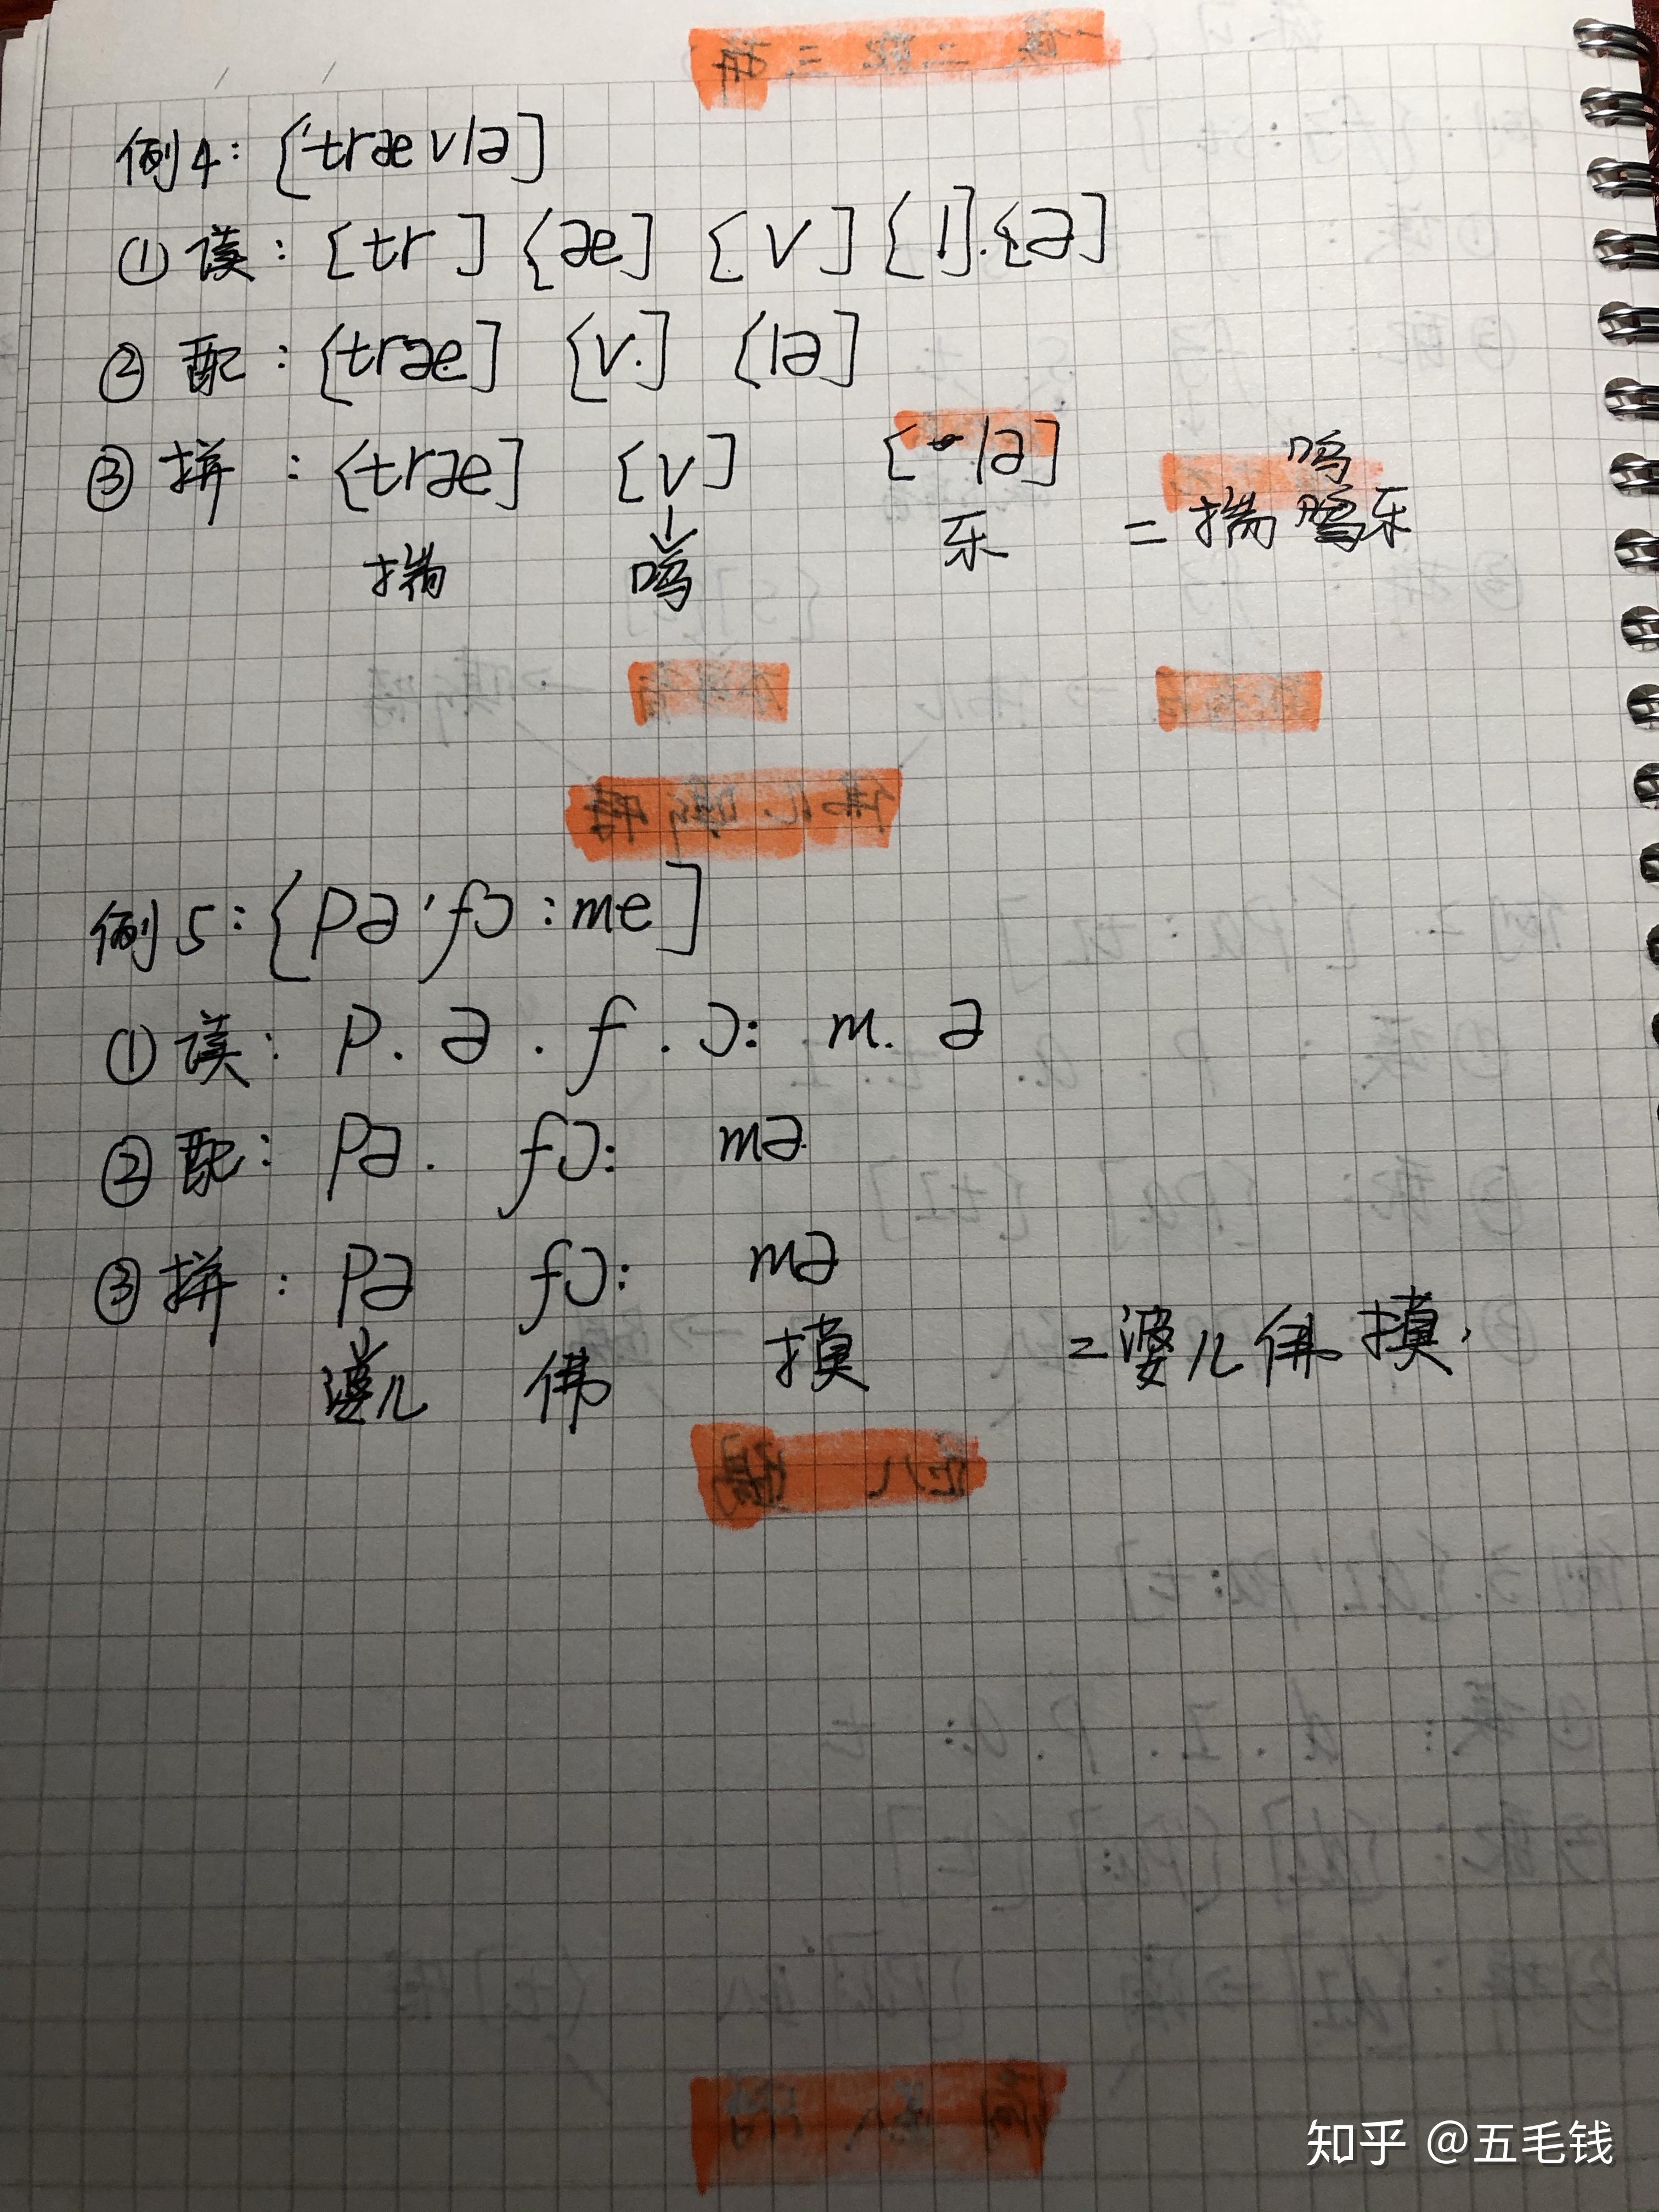 例4: ['trævlə]
①读: [tr] [æ] [v] [l] [ə]
②配: [træ] [v] [lə]
③拼: [træ] [v] [lə]
揣 呜 乐 = 揣呜乐
例5: [pə'fɔ:me]
①读: p. ə. f. ɔ: m. ə
②配: pə. fɔ: mə
③拼: pə fɔ: mə
婆儿 佛 摸 = 婆儿佛摸
知乎 @五毛钱